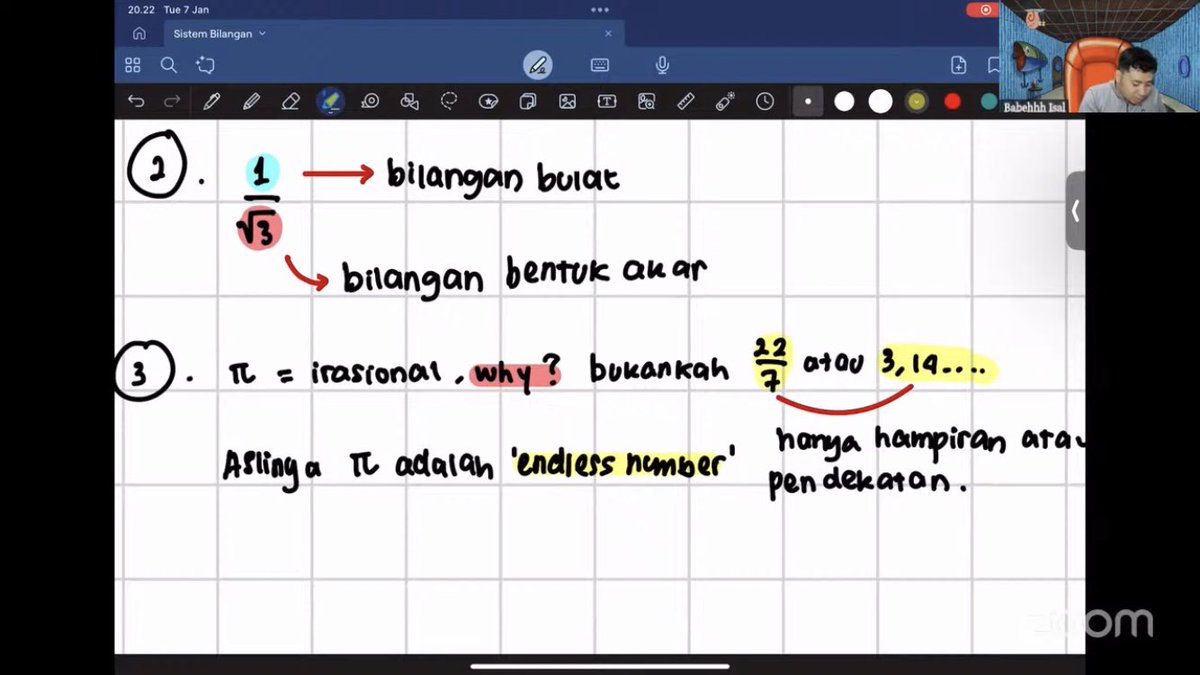 20.22 Tue 7 Jan
Sistem Bilangan
Babehhh Isal
2. 1/√3 → bilangan bulat
bilangan bentuk akar
3. π = irasional, why? bukankah 22/7 atau 3,14....
Aslinya π adalah 'endless number' hanya hampiran atau
pendekatan.
zoom